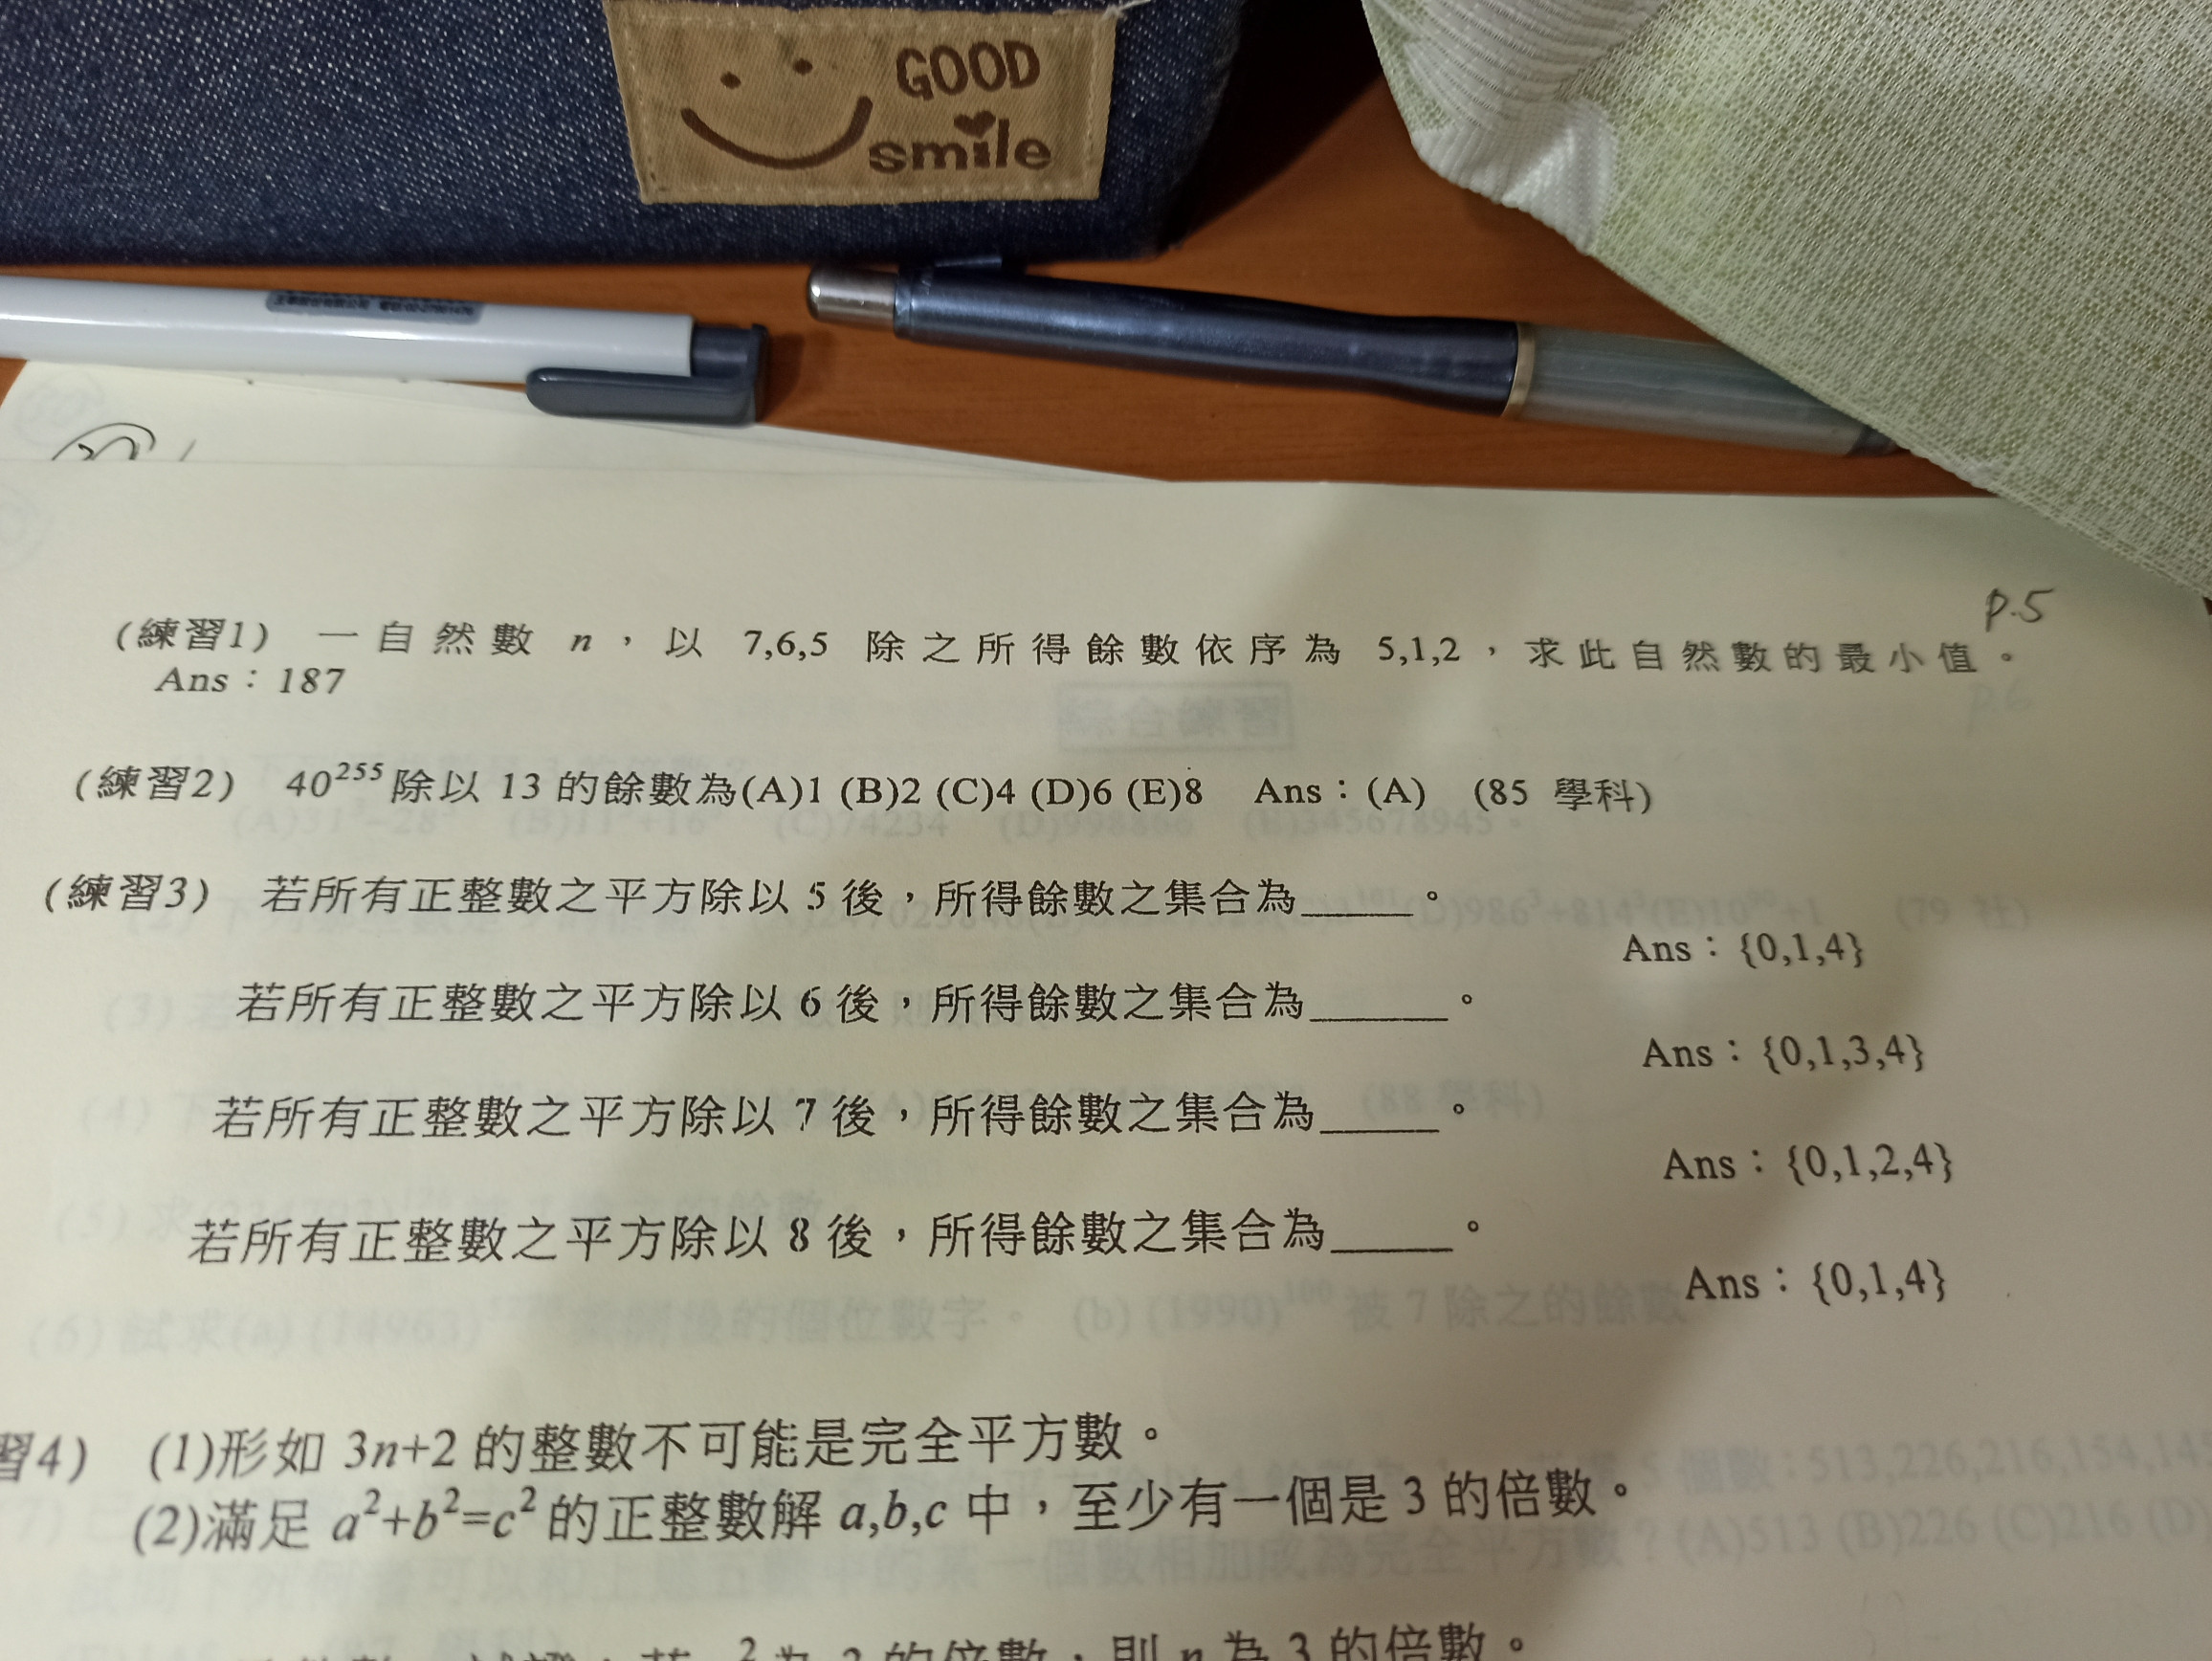 GOOD
smile
p.5
(練習1) 一自然數 n,以 7,6,5 除之所得餘數依序為 5,1,2,求此自然數的最小值。
Ans:187
(練習2) 40²⁵⁵除以 13 的餘數為(A)1 (B)2 (C)4 (D)6 (E)8 Ans:(A) (85 學科)
(練習3) 若所有正整數之平方除以 5 後,所得餘數之集合為_____。
Ans:{0,1,4}
若所有正整數之平方除以 6 後,所得餘數之集合為______。
Ans:{0,1,3,4}
若所有正整數之平方除以 7 後,所得餘數之集合為_____。
Ans:{0,1,2,4}
若所有正整數之平方除以 8 後,所得餘數之集合為_____。
Ans:{0,1,4}
習4) (1)形如 3n+2 的整數不可能是完全平方數。
(2)滿足 a²+b²=c² 的正整數解 a,b,c 中,至少有一個是 3 的倍數。
的倍數,則 n 為 3 的倍數。